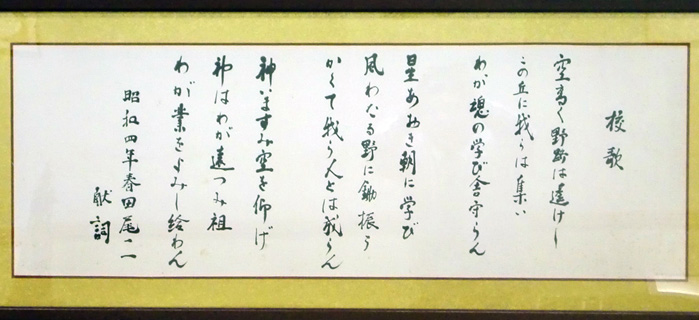 校歌
空高く野路は遠けし
この丘に我らは集い
わが想の学び舎守らん
星あおき朝に学び
風わたる野に鋤振う
かくて我ら人とは成らん
神います み空を仰げ
神はわが遠つみ祖
わが業をよみし給わん
昭和四年春田尾一一
献詞